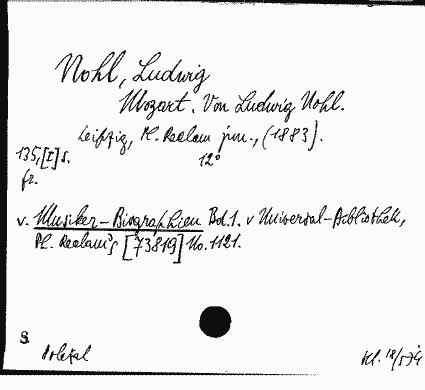 Nohl, Ludwig
Mozart. Von Ludwig Nohl.
Leipzig, Ph. Reclam jun., (1883).
135,[I] S. 12°
fr.
v. Musiker-Biographien Bd.1. v Universal-Bibliothek,
Ph. Reclam's [73819] No. 1121.
S.
Kl. 18/5 74